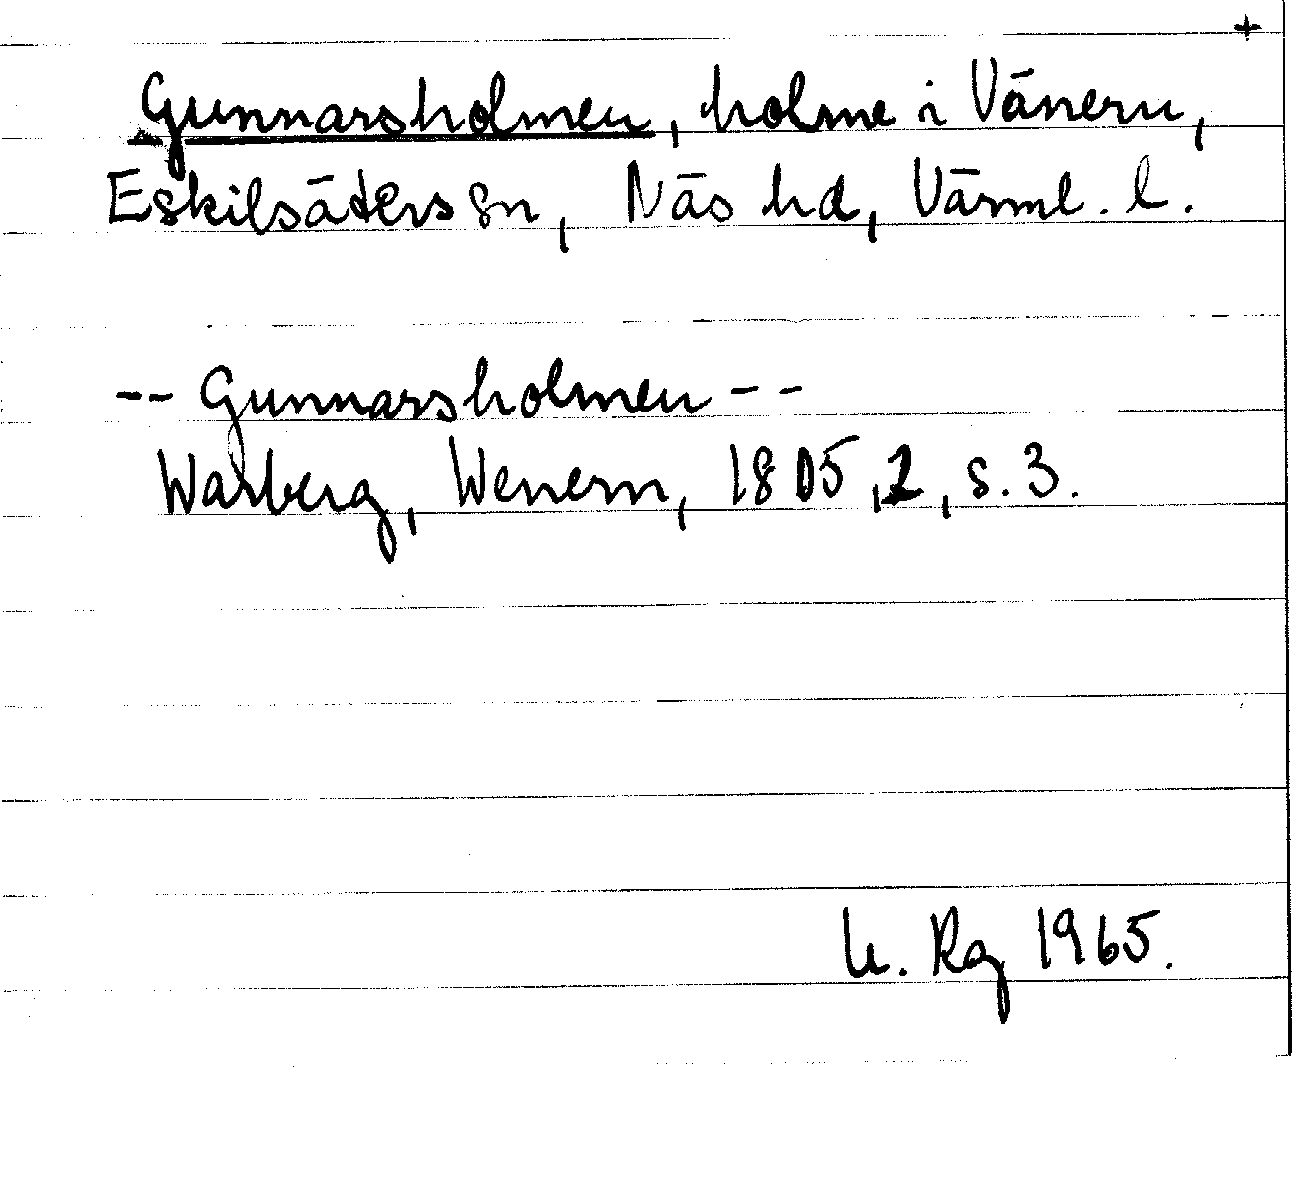 +
Gunnarsholmen, holme i Vänern,
Eskilsäters sn, Näs hd, Värml. l.
-- Gunnarsholmen --
Warberg, Wenern, 1805, 2, s. 3.
U. Rg 1965.